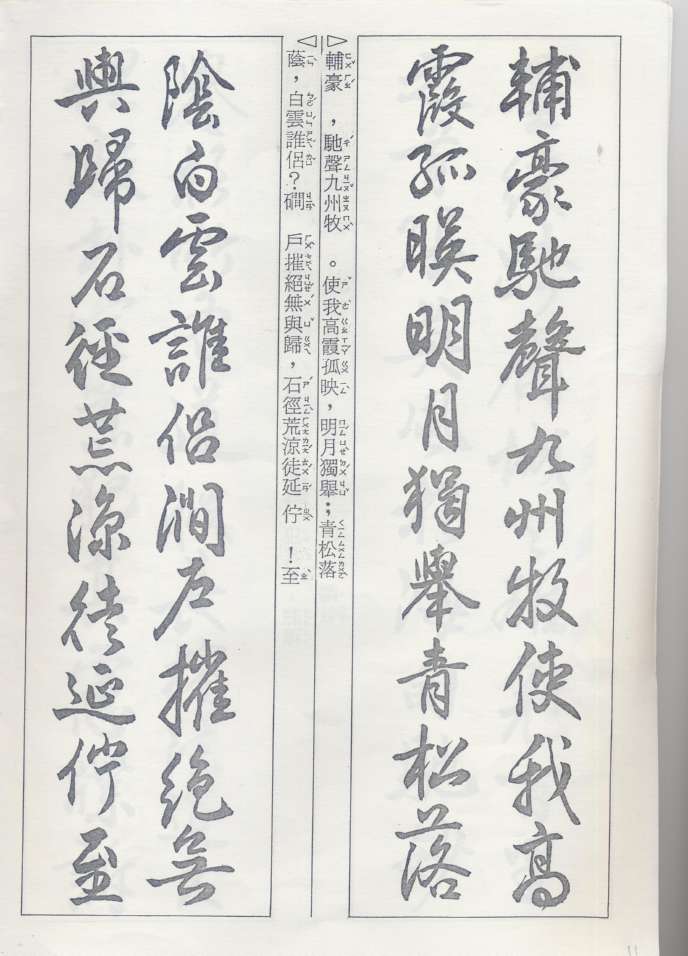 輔豪馳聲九州牧使我高
霞孤暎明月獨舉青松落
輔豪,馳聲九州牧。使我高霞孤映,明月獨舉;青松落
蔭,白雲誰侶?磵戶摧絕無與歸,石徑荒涼徒延佇!至
陰白雲誰侶澗戶摧絕無
與歸石徑荒涼徒延佇至
11